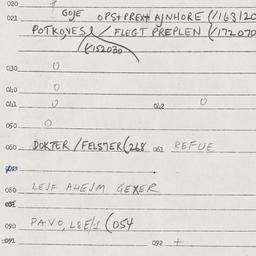 020
GOJE OPS+PREX+ AJNHORE (/163120
021 POTKOVES / FLEGT PREPLEN (/172070
(/152030
030 0
040 0
041 0 042 0
050 0
060 DOKTER/FELSTER (268 061 REFUE
080 LEJF AHEJM GEXER
090 PAVO, L&E/1 (054
091 092 +